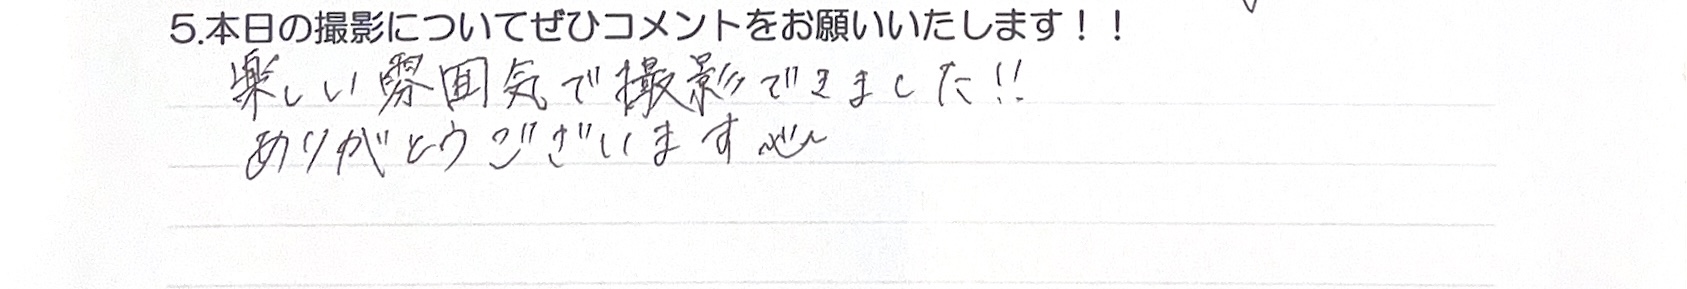 5.本日の撮影についてぜひコメントをお願いいたします！！
楽しい雰囲気で撮影できました!!
ありがとうございます